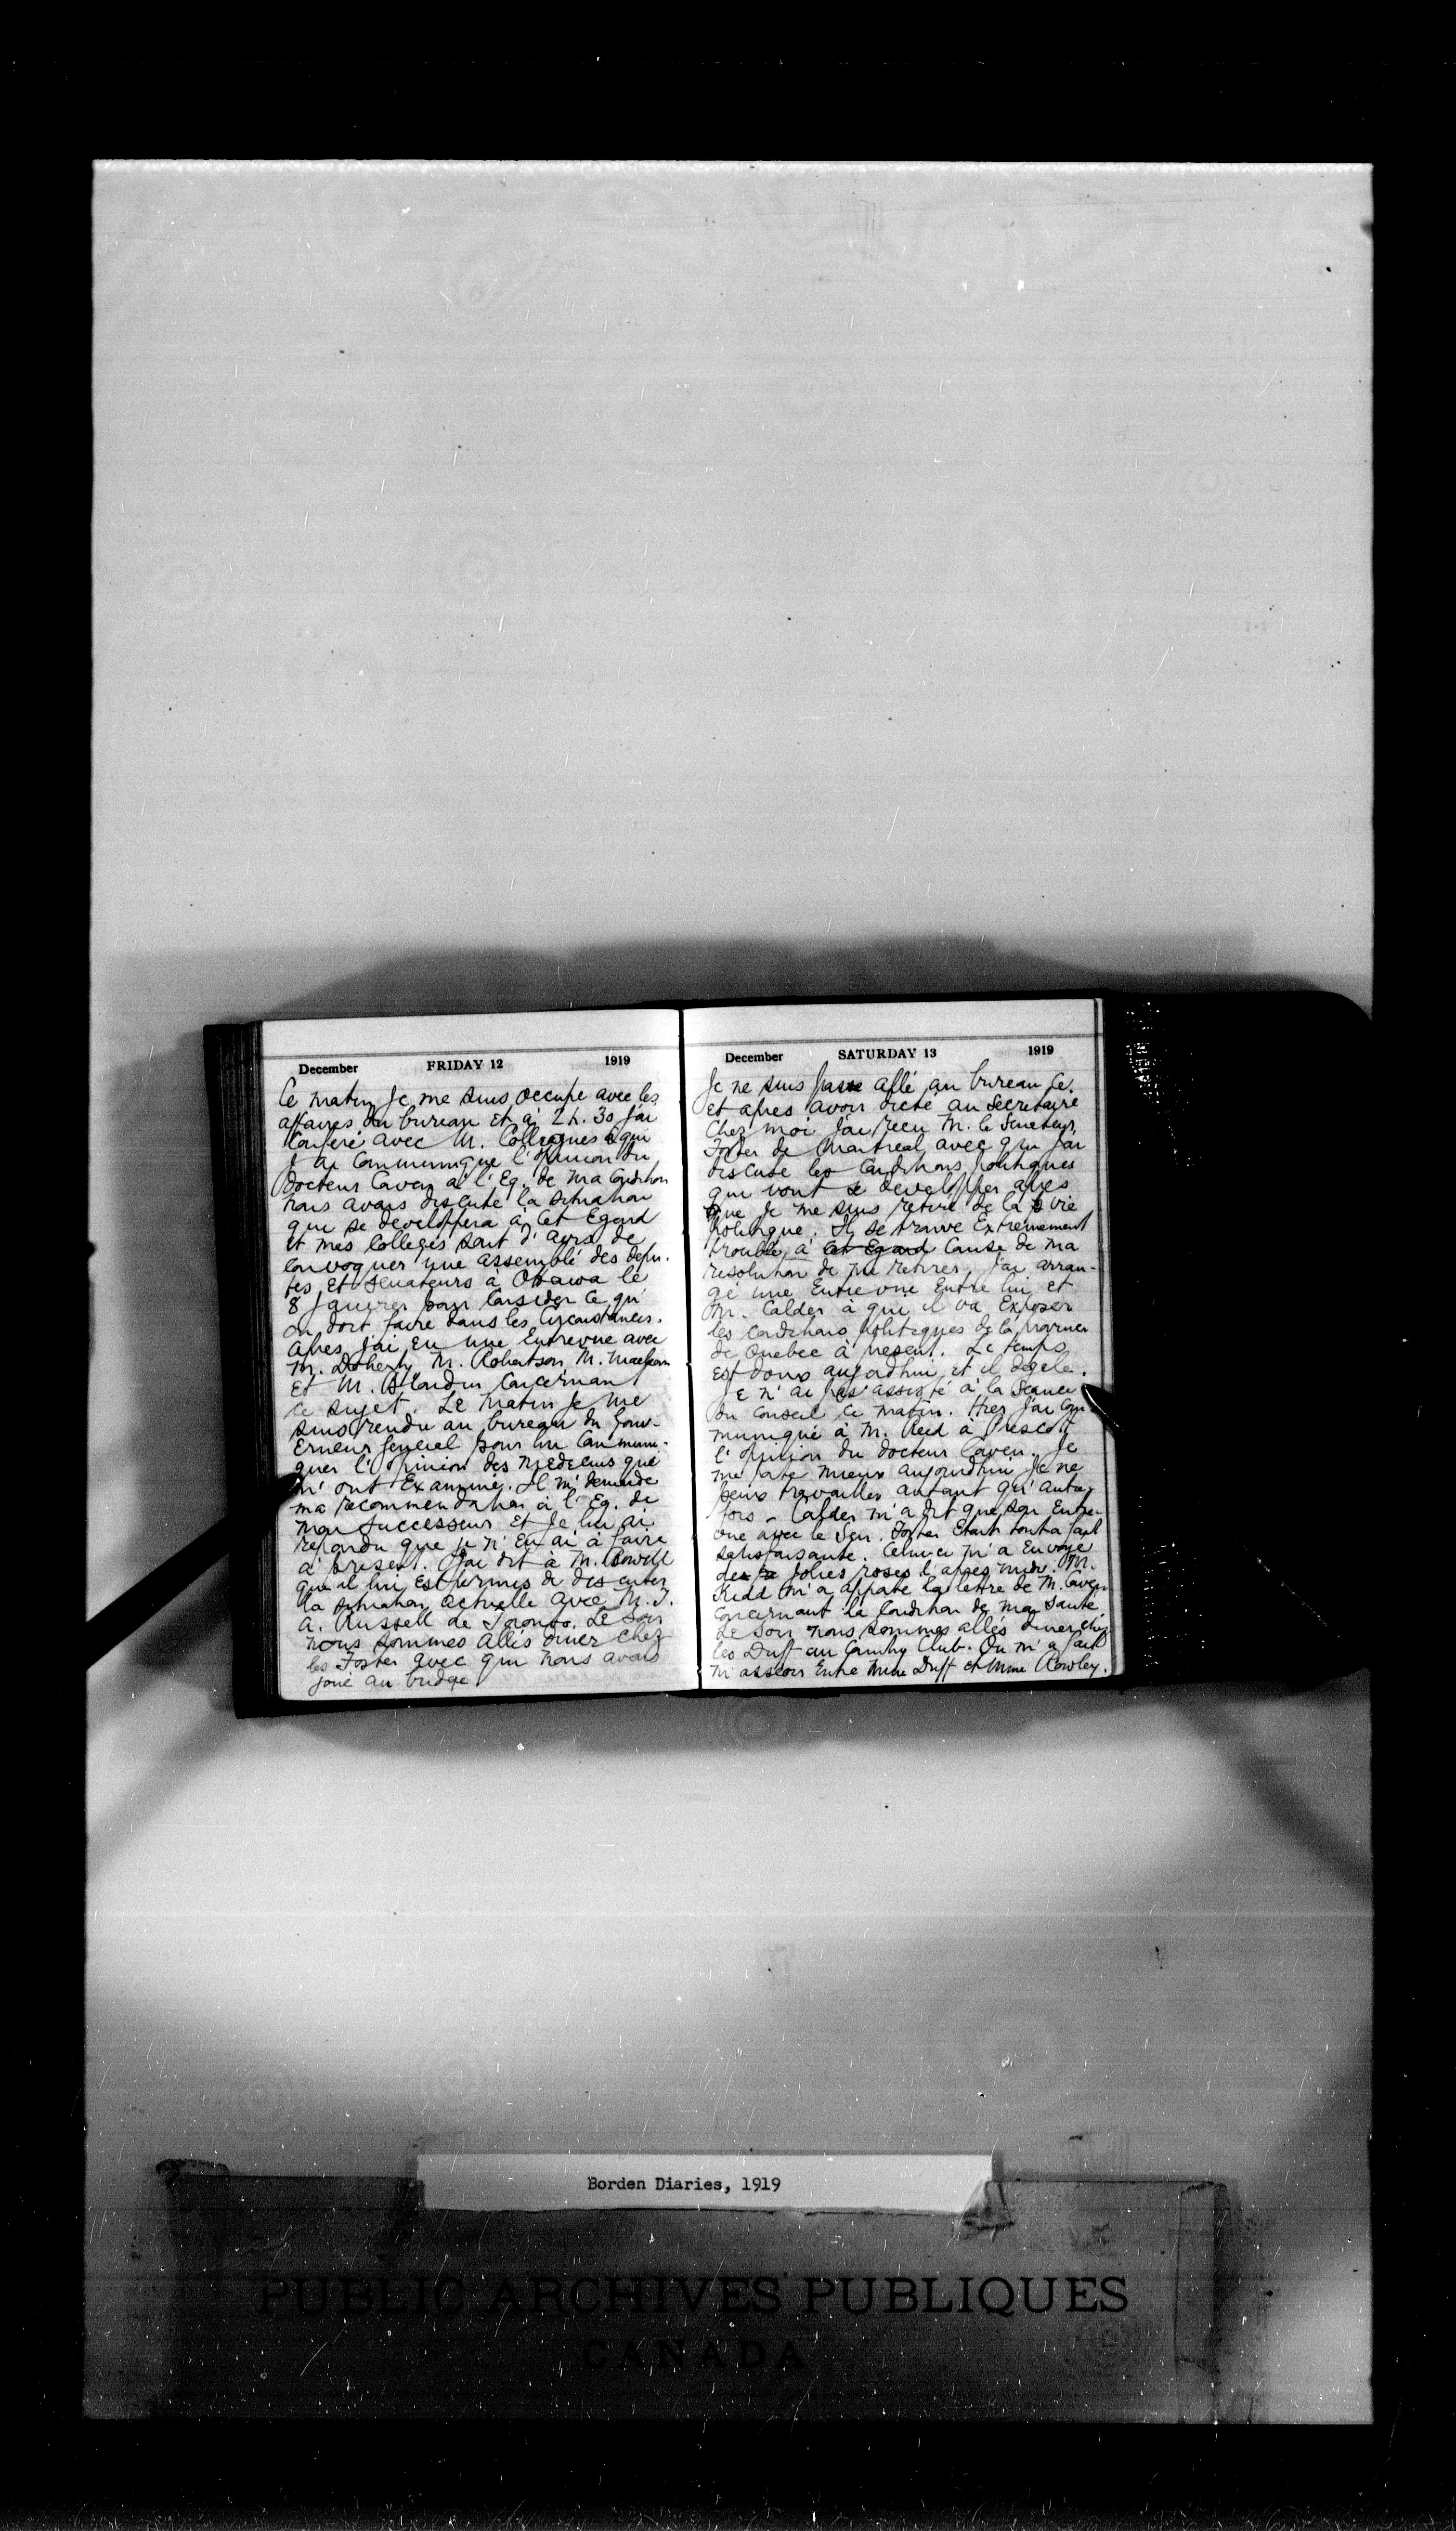 December FRIDAY 12 1919
Ce matin je me suis occupé avec les
affaires du bureau et à 2 h. 30 j'ai
conferé avec M. Collegues à qui
j'ai communiqué l'opinion du
docteur Caven à l'Eg. de ma condition
nous avons discuté la situation
que se developpera à cet Egard
et mes collegés sont d'avis de
convoquer une assemblé des depu-
tes et senateurs à Ottawa le
8 Janvier pour considér ce qu'
on doit faire dans les circonstances.
Apres j'ai eu une Entrevue avec
M. Doherty M. Robertson, M. Maclean
Et M. Blondin concernant
ce sujet. Le matin je me
suis rendu au bureau du Gouv-
Erneur general pour lui communi-
quer l'opinion des medecins que
m'ont Examiné. Il m'demande
ma recommendation à l'Eg. de
mon successeur et je lui ai
repondu que je n'En ai à faire
à present. J'ai dit à M. Rowell
que il lui est permis de discuter
la situation actuelle avec M. J.
A. Russell de Toronto. Le soir
nous sommes allés diner chez
les Foster avec qui nous avons
joué au bridge
December SATURDAY 13 1919
Je ne suis pas allé au bureau ce.
et apres avoir dicté au Secretaire
chez moi j'ai reçu M. le Senateur,
Foster de Montreal avec qui j'ai
discuté les conditions politiques
qui vont se developper apres
que je me suis retiré de la vie
politique. Il se trouve Extremement
troublé à cet Egard Cause de ma
resolution de me retirer. J'ai arran-
gé une Entrevue Entre lui et
M. Calder à qui il va Exposer
les conditions politiques de la province
de Quebec à present. Le temps
est doux aujordhui et il degele.
JE n'ai pas assisté à la Seance
du conseil ce matin. Hier j'ai com
muniqué à M. Reid à Prescott
l'opinion du docteur Caven. Je
me porte mieux aujourdhui Je ne
peux travailler autant qu'autre
fois - Calder m'a dit que son Entre-
vue avec le Sen. Foster Etait tout a fait
satisfaisante. Celui-ci m'a Envoyé
des jolies roses l'apres midi. M.
Kidd m'a apporté la lettre de M. Caven
concernant la condition de ma santé
Le soir nous sommes allés diner chez
les Duff au Country Club. On m'a fait
m'asseoir Entre Mme Duff et Mme Rowley.
Borden Diaries, 1919
PUBLIC ARCHIVES PUBLIQUES
CANADA